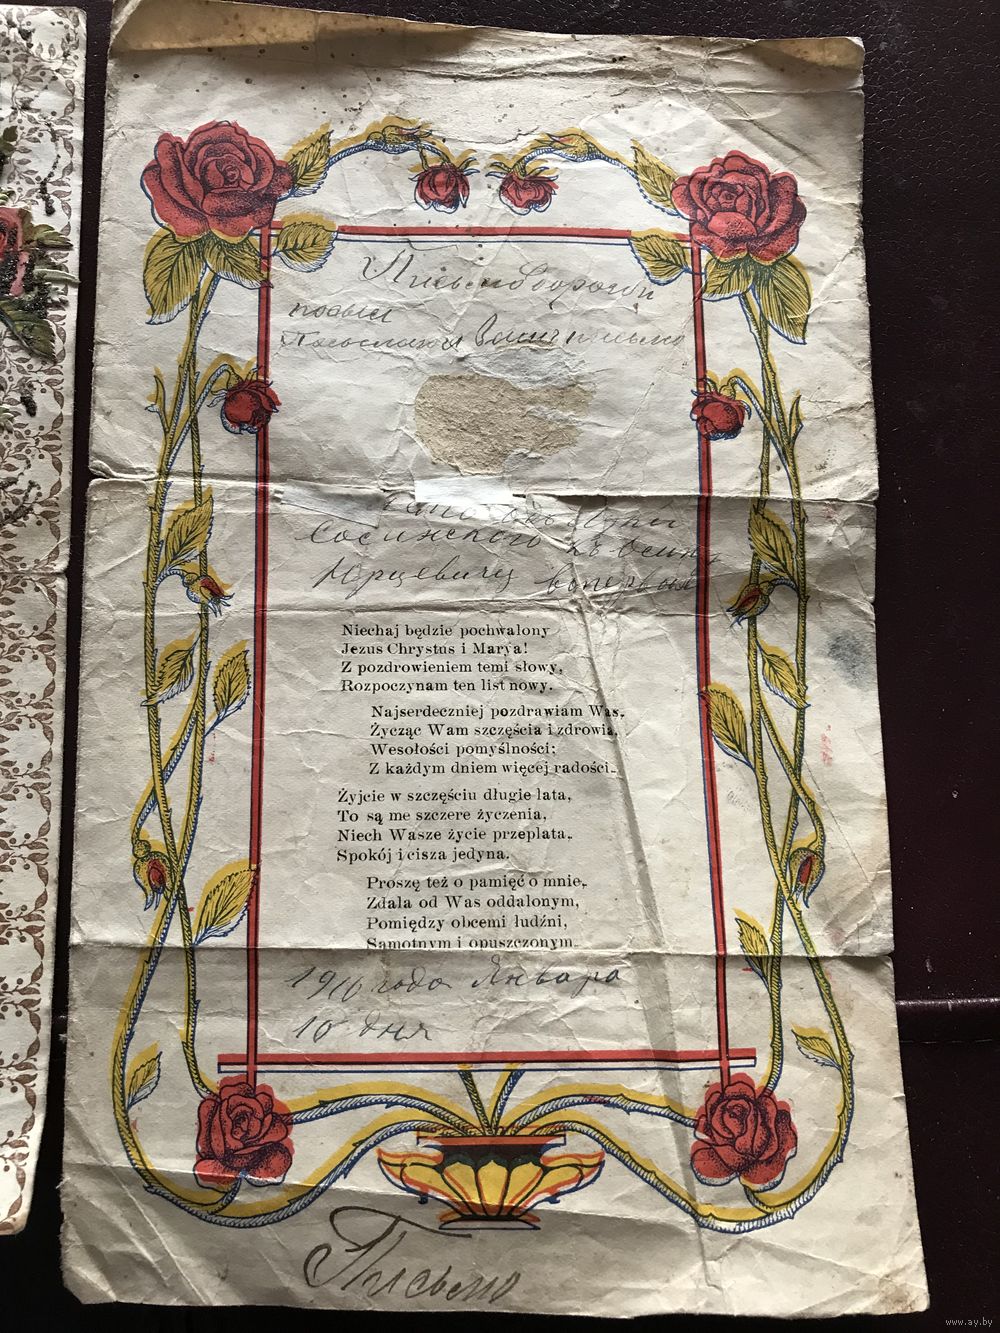 посыл
письмо
Сосинского къ Осипу
Юрцевичу
Niechaj będzie pochwalony
Jezus Chrystus i Marya!
Z pozdrowieniem temi słowy,
Rozpoczynam ten list nowy.
Najserdeczniej pozdrawiam Was,
Życząc Wam szczęścia i zdrowia,
Wesołości pomyślności;
Z każdym dniem więcej radości.
Żyjcie w szczęściu długie lata,
To są me szczere życzenia,
Niech Wasze życie przeplata,
Spokój i cisza jedyna.
Proszę też o pamięć o mnie,
Zdala od Was oddalonym,
Pomiędzy obcemi ludźni,
Samotnym i opuszczonym.
1916 года Января
10 дня
Письмо
www.ay.by